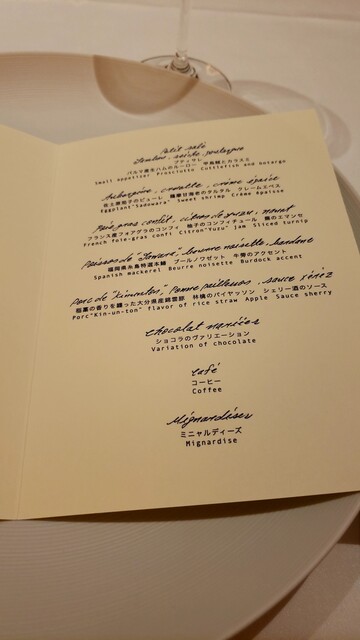 Petit salé
プティサレ
バルマ産生ハムのルーロー 甲烏賊とカラスミ
Small appetizer Prosciutto Cuttlefish and botargo
Aubergine, crevette, crème épaisse
佐土原茄子のピューレ 薩摩甘海老のタルタル クレームエペス
Eggplant "Sadowara" Sweet shrimp Crème épaisse
Foie gras confit, citron de yuzu, navet
フランス産フォアグラのコンフィ 柚子のコンフィチュール 蕪のエマンセ
French foie-gras confi Citron"Yuzu" jam Sliced turnip
beurre noisette, bardane
福岡県糸島特選本鰆 ブールノワゼット 牛蒡のアクセント
Spanish mackerel Beurre noisette Burdock accent
Porc de "kinunton", Pomme paillasson, sauce Xérèz
稲藁の香りを纏った大分県産錦雲豚 林檎のパイヤッソン シェリー酒のソース
Porc"Kin-un-ton" flavor of rice straw Apple Sauce sherry
Chocolat variées
ショコラのヴァリエーション
Variation of chocolate
Café
コーヒー
Coffee
Mignardises
ミニャルディーズ
Mignardise